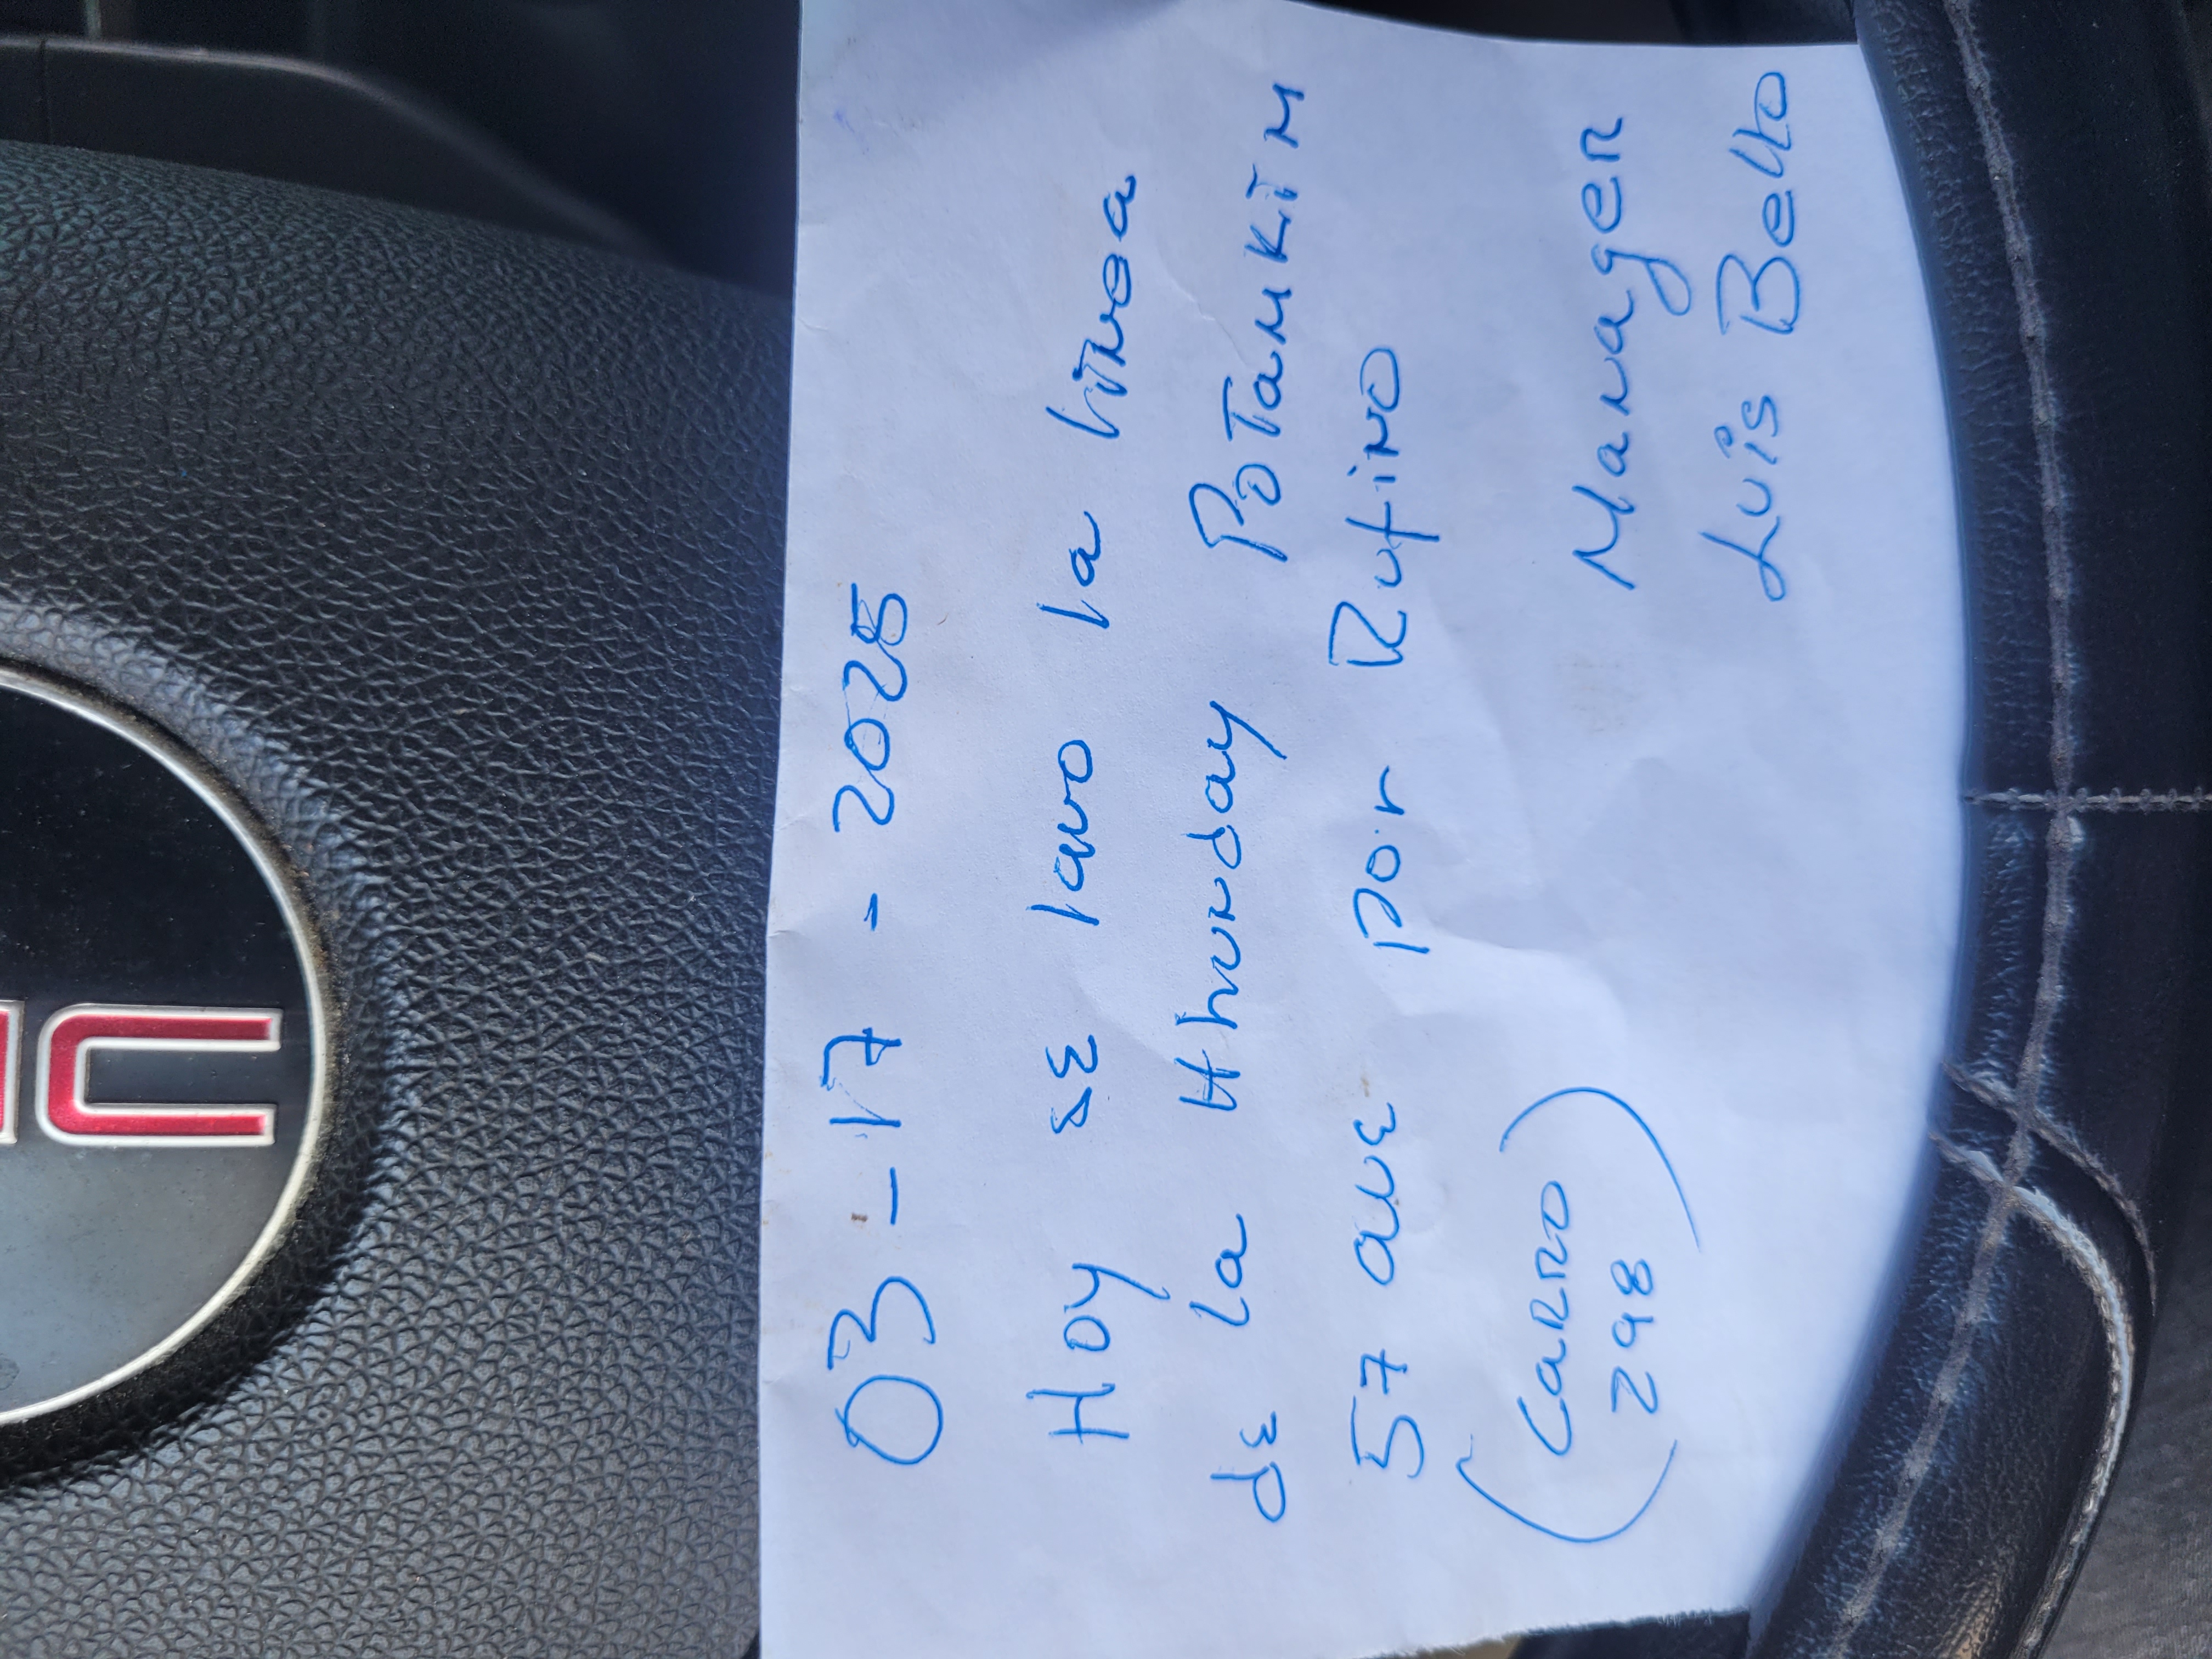 03-17-2025
Hoy se lavo la linea
de la Hhunday Potamkin
57 ave por Rufino
(Carro
298)
Manager
Luis Bello